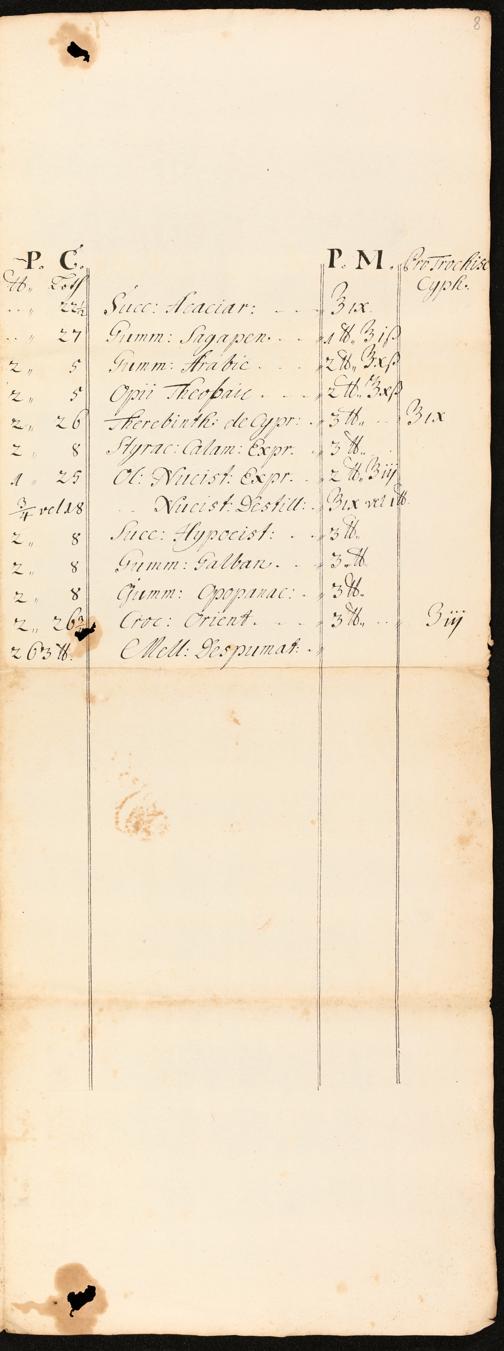 8
P. C. P. M. Pro Trochisc
℔ „ Loth Cyph.
„ 22½ Succ: Acaciar: ʒıx.
„ 27 Gumm: Sagapen. 1 ℔. ʒiß
2 „ 5 Gumm: Arabic 2 ℔. ʒxß
2 „ 5 Opii Thebaic 2 ℔. ʒxß
2 „ 26 Therebinth: de Cypr: 3 ℔. ʒıx
2 „ 8 Styrac: Calam: Expr. 3 ℔.
1 „ 25 Ol: Nucist: Expr. 2 ℔. ʒiij
¾ vel 18 Nucist: Destill: ʒıx vel 1℔.
2 „ 8 Succ: Hypocist: 3 ℔.
2 „ 8 Gumm: Galban. 3 ℔.
2 „ 8 Gumm: Opopanac: 3 ℔.
2 „ 26¾ Croc: Orient. 3 ℔. ʒiij
263 ℔. Mell: Despumat: